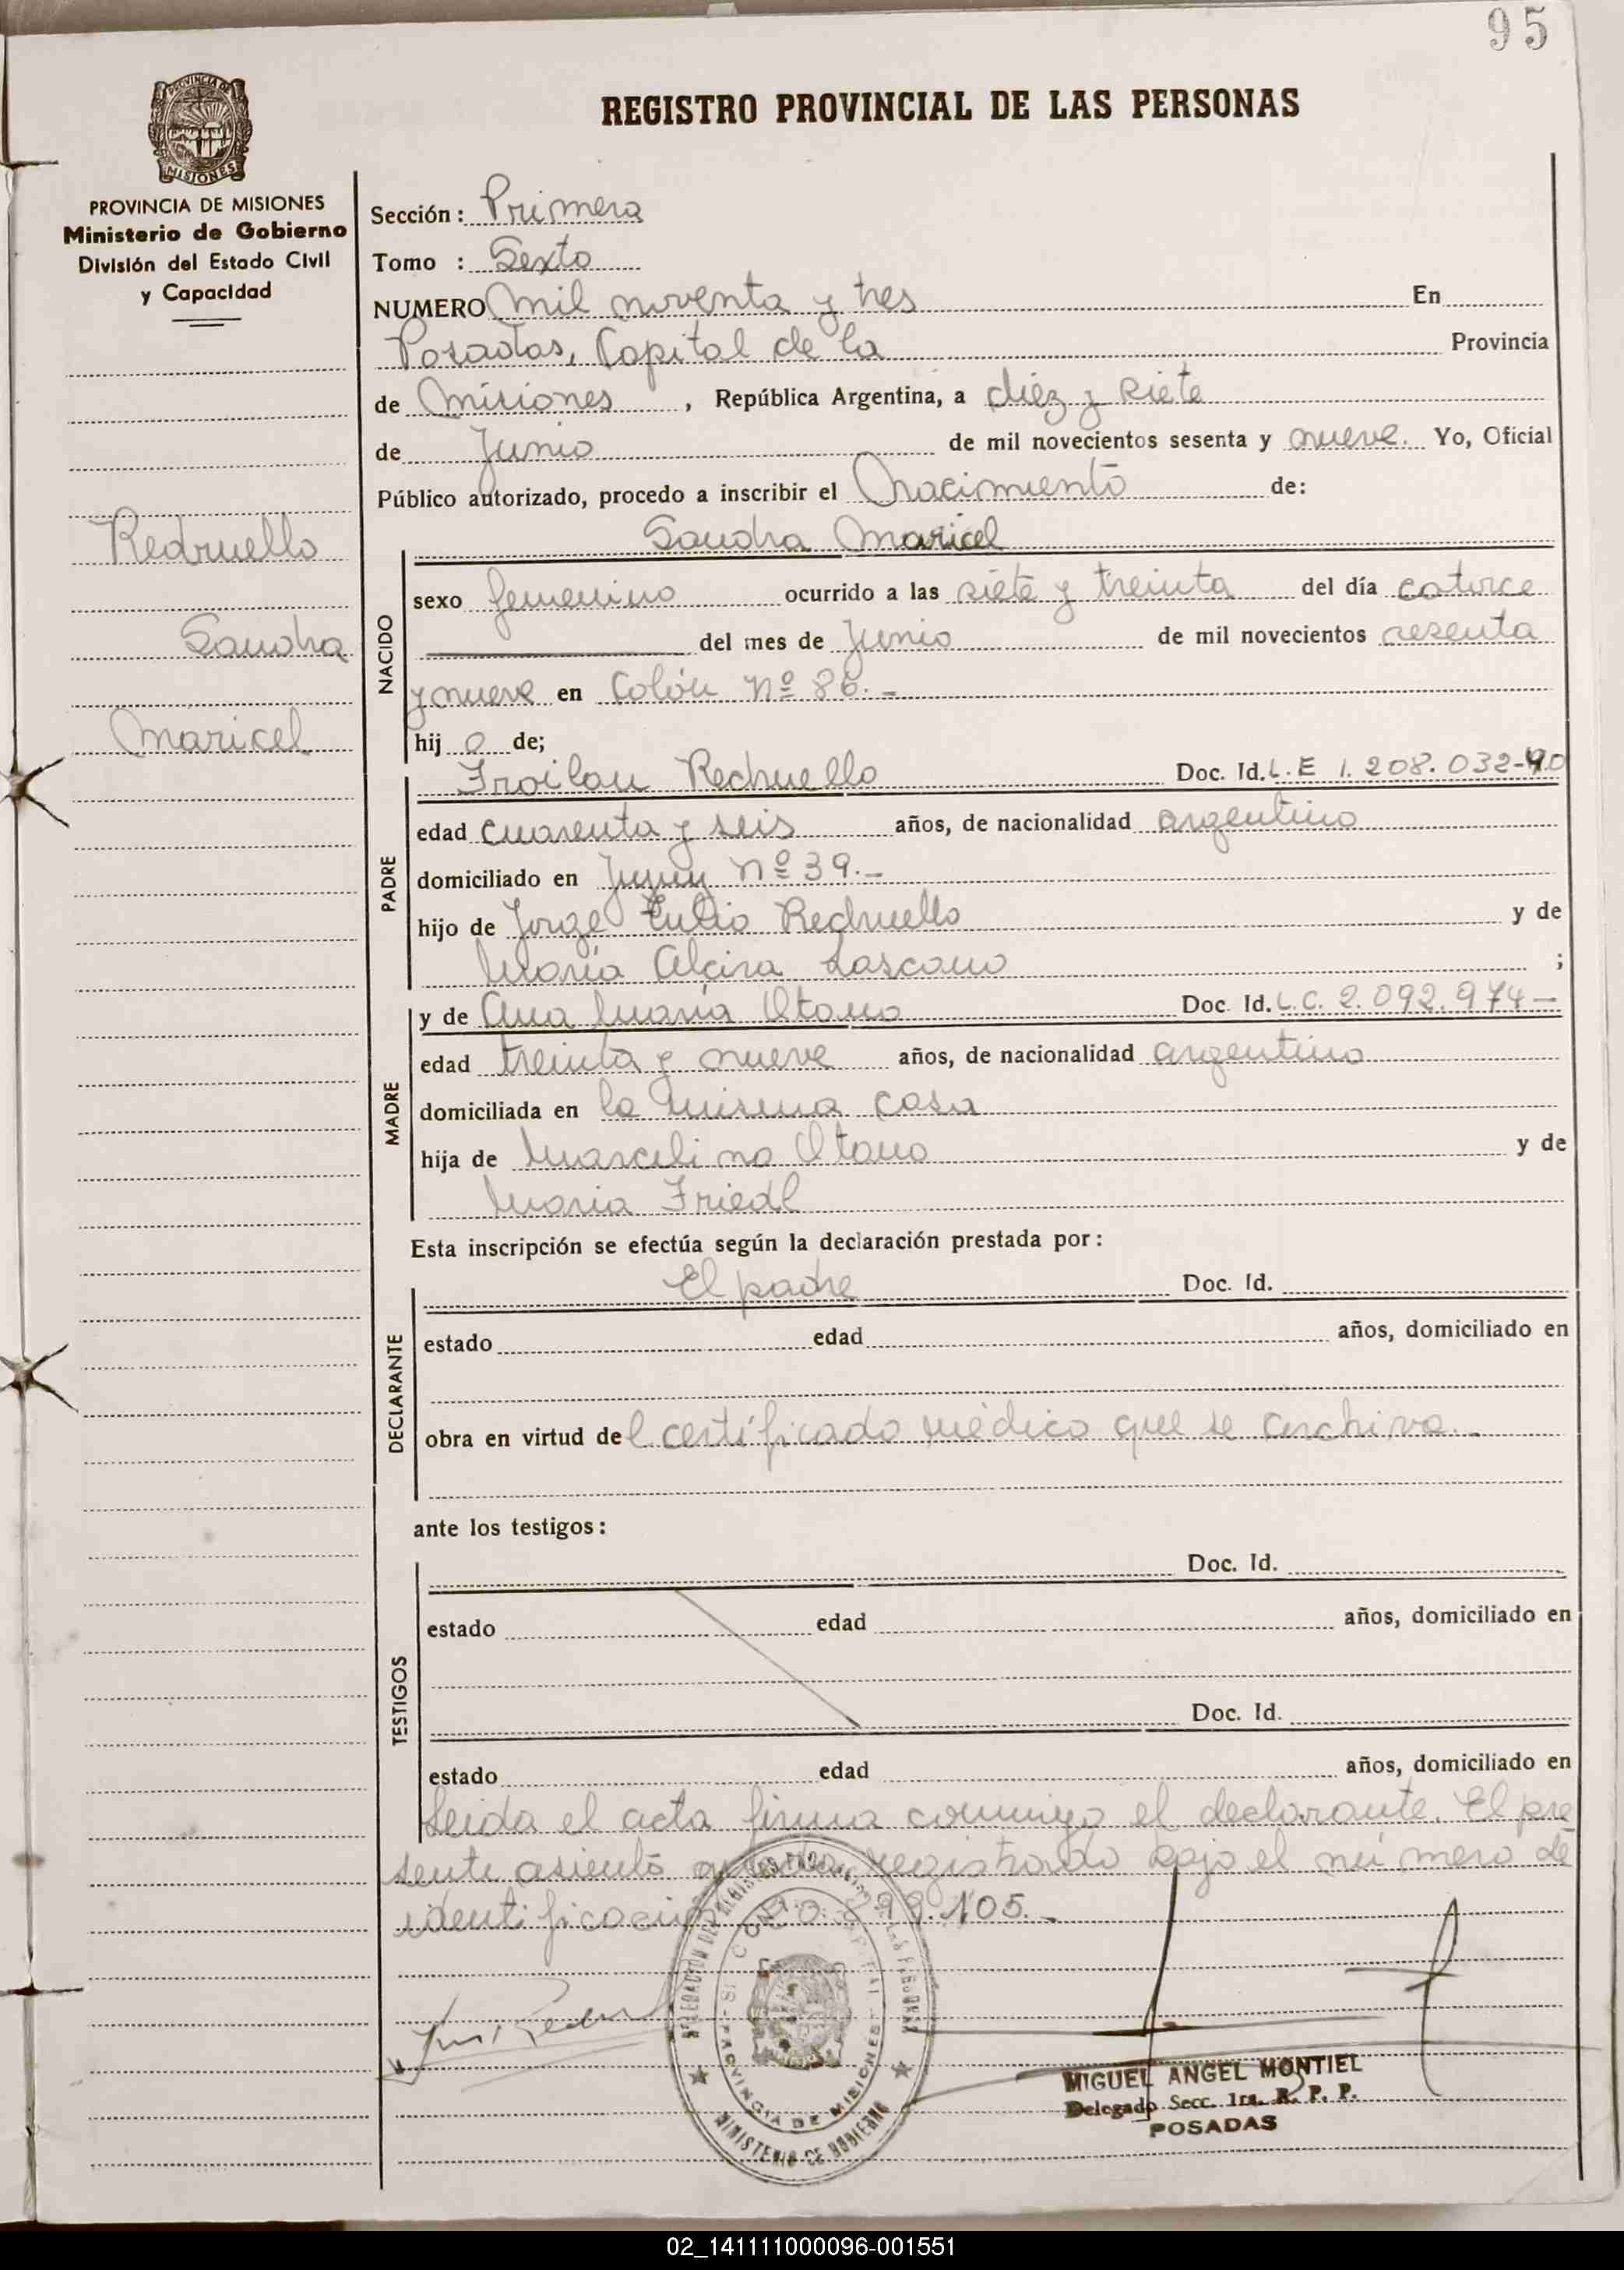 95
REGISTRO PROVINCIAL DE LAS PERSONAS
PROVINCIA DE
MISIONES
PROVINCIA DE MISIONES
Ministerio de Gobierno
División del Estado Civil
y Capacidad
Redruello
Sandra
Maricel
Sección: Primera
Tomo : Sexto
NUMERO mil noventa y tres En
Posadas, Capital de la Provincia
de Misiones, República Argentina, a diez y siete
de Junio de mil novecientos sesenta y nueve. Yo, Oficial
Público autorizado, procedo a inscribir el Nacimiento de:
Sandra Maricel
NACIDO
sexo femenino ocurrido a las siete y treinta del día catorce
del mes de Junio de mil novecientos sesenta
y nueve en Colón Nº 86.-
hij a de;
PADRE
Froilan Redruello Doc. Id. L.E 1.208.032-40
edad cuarenta y seis años, de nacionalidad argentino
domiciliado en Jujuy Nº 39.-
hijo de Jorge Tulio Redruello y de
María Alcira Lascano ;
MADRE
y de Ana María Otano Doc. Id. L.C. 2.092.974-
edad treinta y nueve años, de nacionalidad argentino
domiciliada en la misma casa
hija de Marcelino Otano y de
Maria Friedl
Esta inscripción se efectúa según la declaración prestada por:
DECLARANTE
El padre Doc. Id.
estado edad años, domiciliado en
obra en virtud del certificado médico que se archiva.-
ante los testigos:
TESTIGOS
Doc. Id.
estado edad años, domiciliado en
Doc. Id.
estado edad años, domiciliado en
Leida el acta firma conmigo el declarante. El pre
sente asiento registrado bajo el número de
identificación 105.-
PROVINCIA DE MISIONES
MINISTERIO DE GOBIERNO
MIGUEL ANGEL MONTIEL
Delegado Secc. 1ra. R. P. P.
POSADAS
02_141111000096-001551